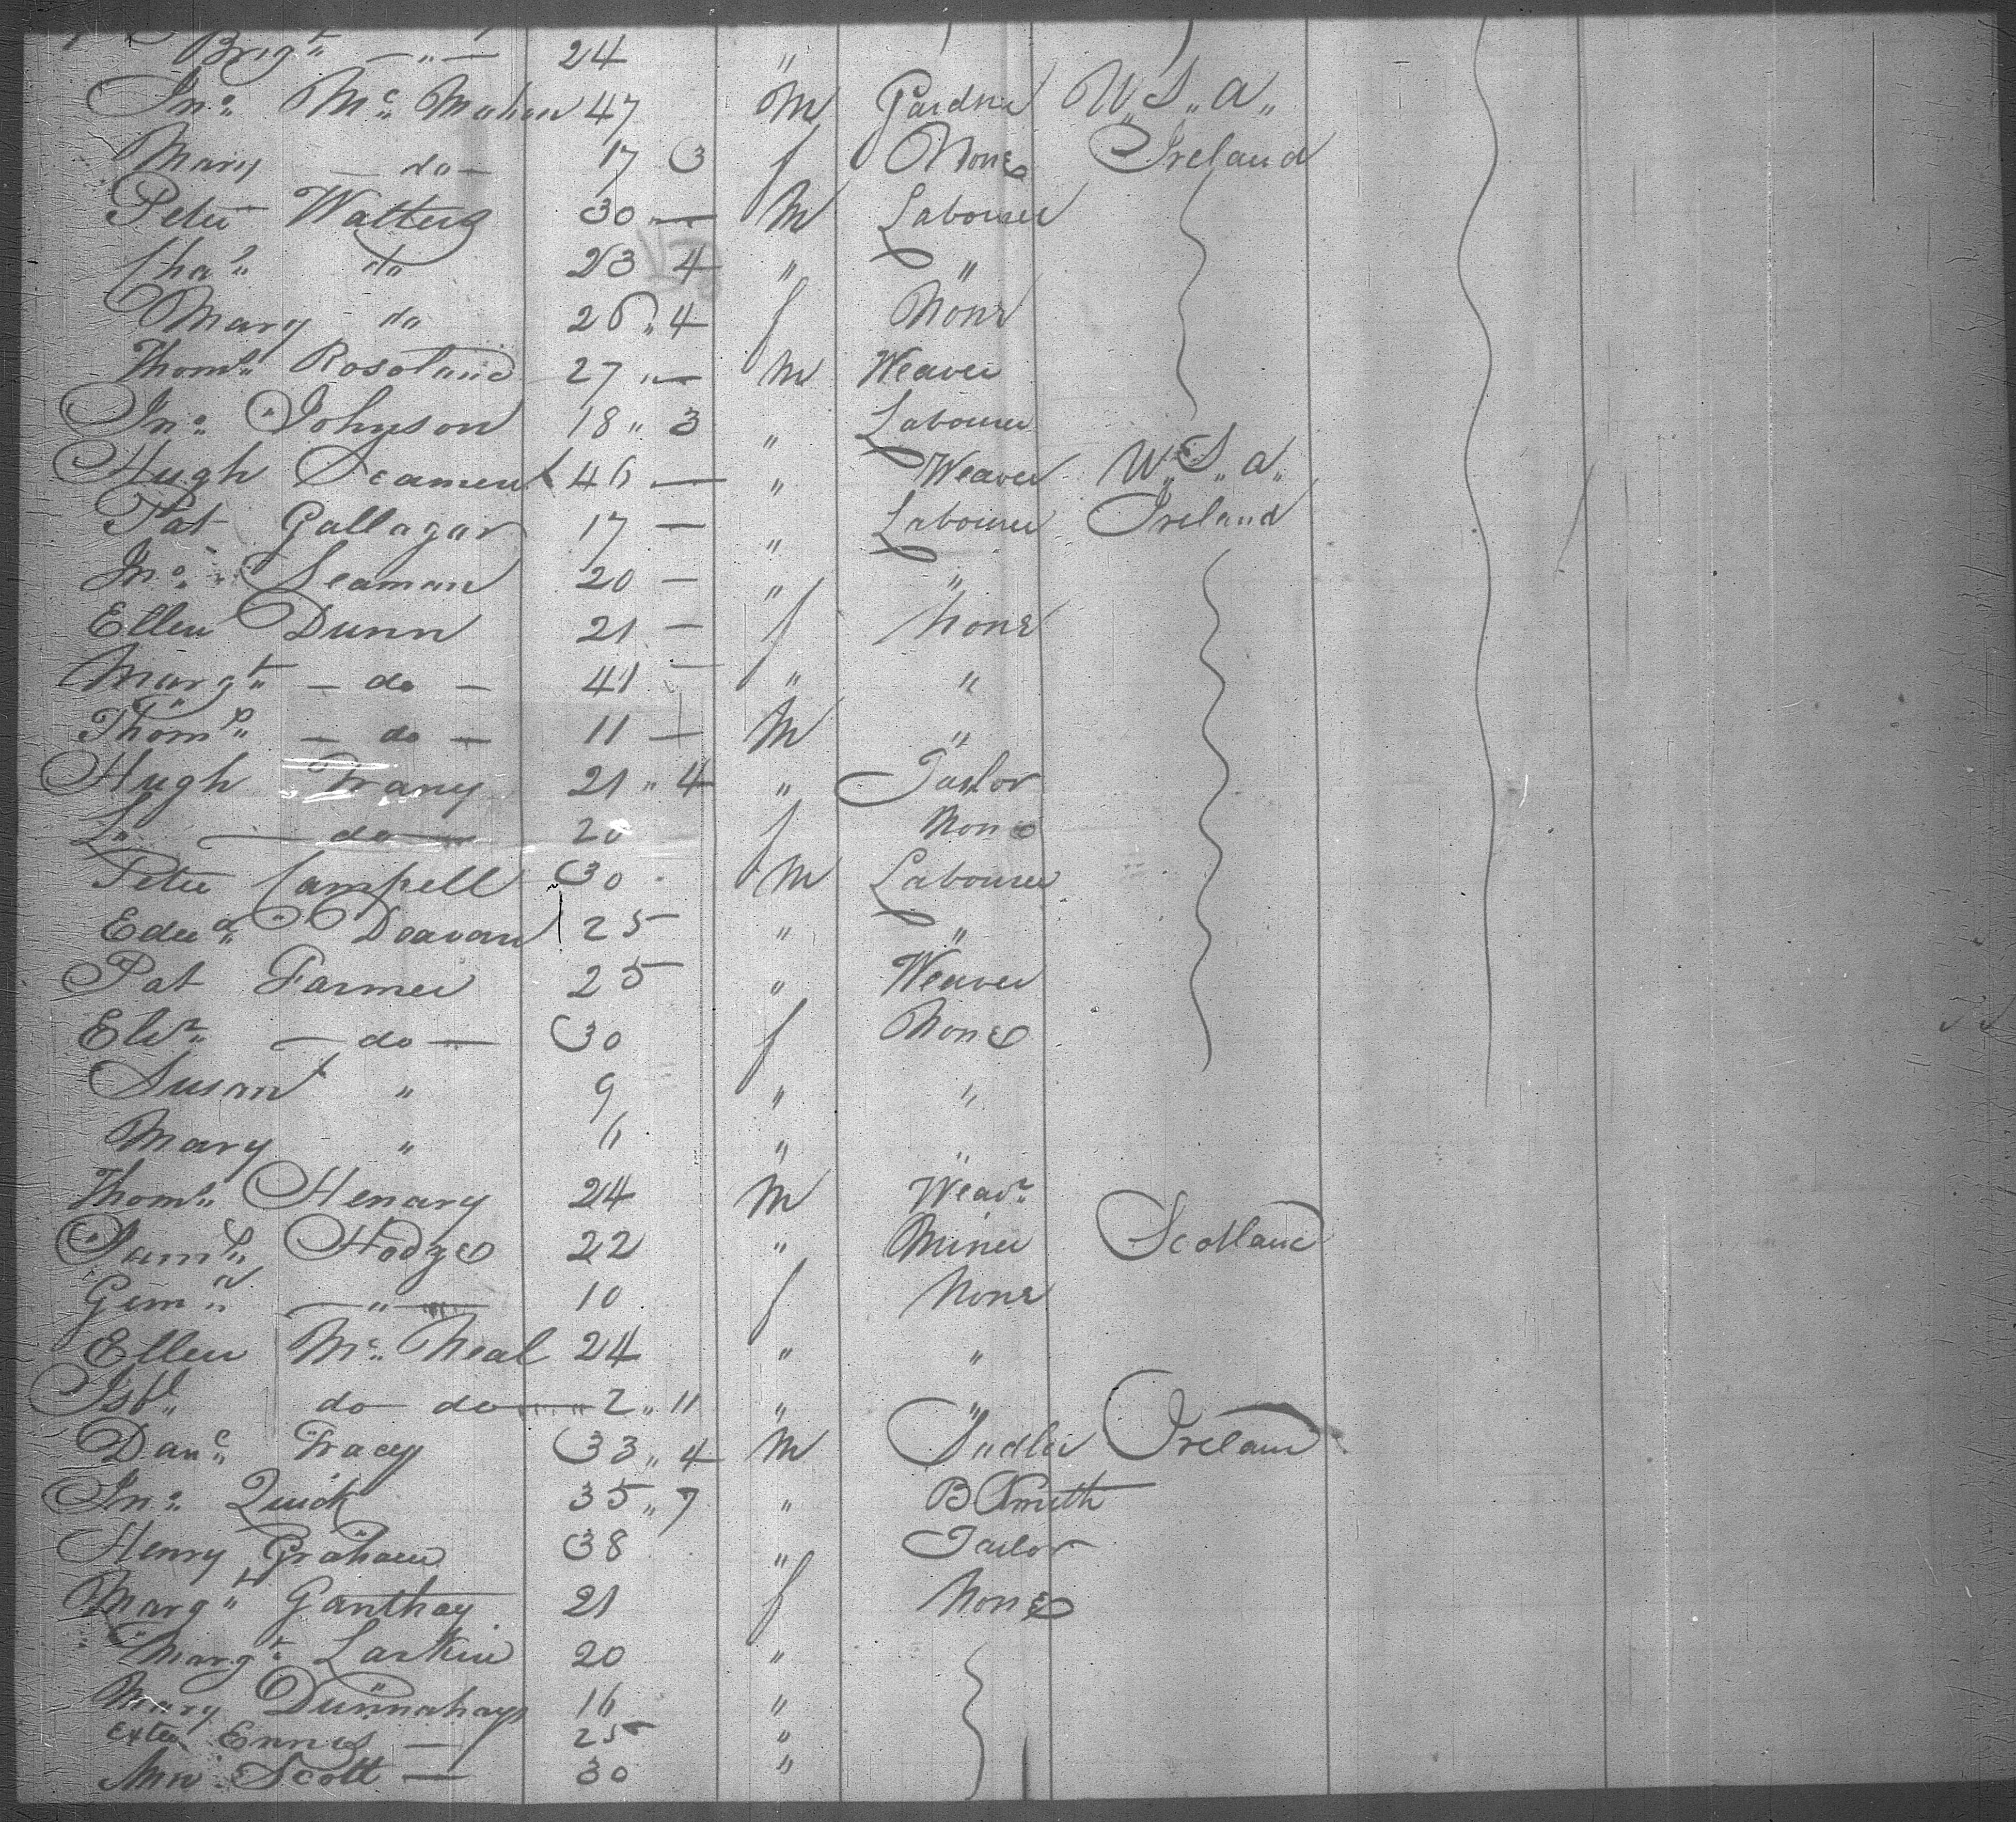 Brigt — " — 24 "
Jno. Mc. Mahon 47 M Gardner U,, S,, A,,
Mary — do — 17 3 f None Ireland
Peter Watters 30 — M Labourer
Chas. do 23 4 " "
Mary do 26 ,, 4 f None
Thoms. 27 ,, — M Weaver
Jno. Johnson 18 ,, 3 " Labourer
Hugh 46 — " Weaver U,, S,, A,,
Pat Gallagar 17 — " Labourer Ireland
Jno. Seaman 20 — " "
Ellen Dunn 21 — f None
Margt — do — 41 — " "
Thoms. — do — 11 — M "
Hugh 21 ,, 4 " Tailor
— do — 20 f None
Peter Campell 30 M Labourer
25 " "
Pat Farmer 25 " Weaver
Elizr. — do — 30 f None
Susan " 9 " "
Mary " 6 " "
Thoms. Henary 24 M Weavr.
Saml. Hodge 22 " Miner Scotland
— " — 10 f None
Ellen Mc. Neal 24 " "
Isbl. do do — 2 ,, 11 " "
Danl. Tracey 33 ,, 4 M Sadler Ireland
Jno. Quick 35 ,, 7 " B Smith
Henry Graham 38 " Tailor
Margt. Ganthay 21 f None
Margt. Larkin 20 "
Mary Dunnahays 16 "
Ennes — 25 "
Ann Scott — 30 "